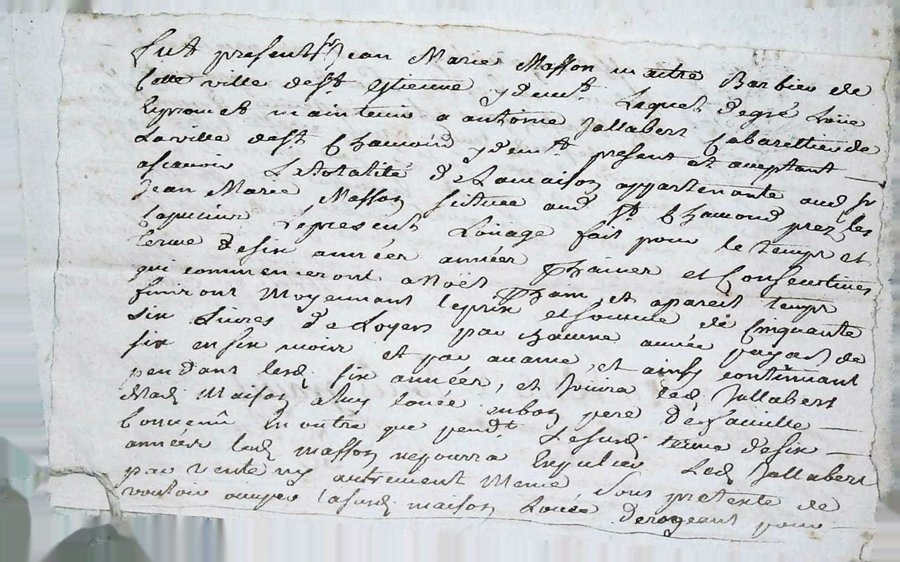 fut present Sr Jean Marie Masson maitre Barbier de
Cette ville de St Etienne y demt. Lequel de gré Loüe
et promet maintenir a antoine Jallabert Cabarettier de
La ville de St Chamond y demt. present et acceptant
ascavoir La totalité de La maison appartenante aud. Sr
Jean Marie Masson scituée aud. St Chamond prez les
Capucins Le present Loüage fait pour le temps et
terme de six années années Prhaines et Consecutives
qui commenceront a noël Prhain et a pareil temps
finiront Moyennant le prix et somme de Cinquante
six Livres de Loyer par chacune année payable de
six en six mois et par avance et ainsy continuant
pendant lesd. six années, et Joüira led. Jallabert
de lad. Maison a luy louée en bon pere de famille
Convenu En outre que pendt. Le susd. terme de six
années led. Masson ne pourra Expulser Led. Jallabert
par vente ny autrement Meme sous pretexte de
vouloir occuper lasusd. maison Louée derogeant pour